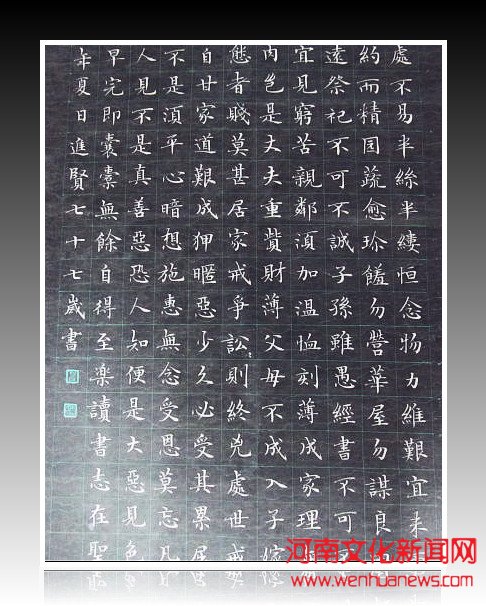 處不易半絲半縷恒念物力維艱宜未
約而精園蔬愈珍饈勿營華屋勿謀良
遠祭祀不可不誠子孫雖愚經書不可
宜見窮苦親鄰須加溫恤刻薄成家理
肉豈是丈夫重貲財薄父母不成人子嫁
態者賤莫甚居家戒爭訟〻則終兇處世戒
自甘家道艱成狎暱惡少久必受其累屈
不是須平心暗想施惠無念受恩莫忘凡
人見不是真善惡恐人知便是大惡見色
早完即囊橐無餘自得至樂讀書志在聖
夏日進賢七十七歲書
河南文化新闻网
www.wenhuanews.com